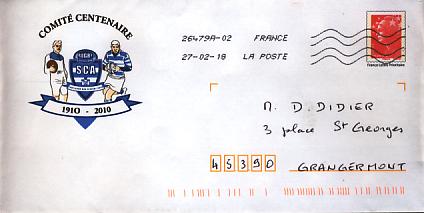 COMITÉ CENTENAIRE
RUGBY
S.C.A
1910 - 2010
26479A-02 FRANCE
27-02-18 LA POSTE
France Lettre Prioritaire
M. D. DIDIER
3 place St Georges
45390 GRANGERMONT